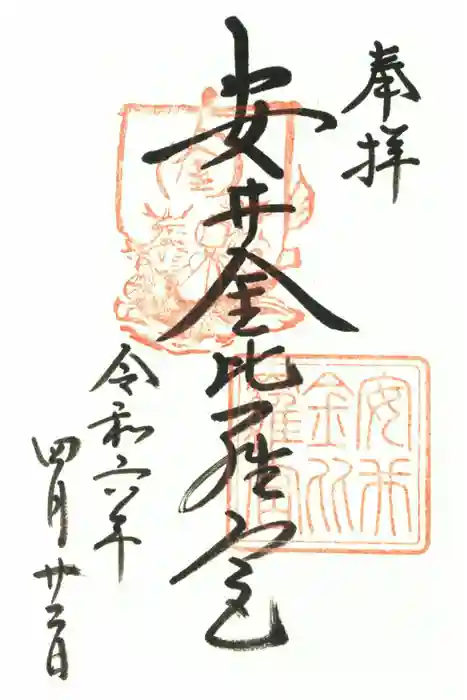 奉拝
安井金比羅宮
令和六年
四月廿三日
金
安井
金比
羅宮